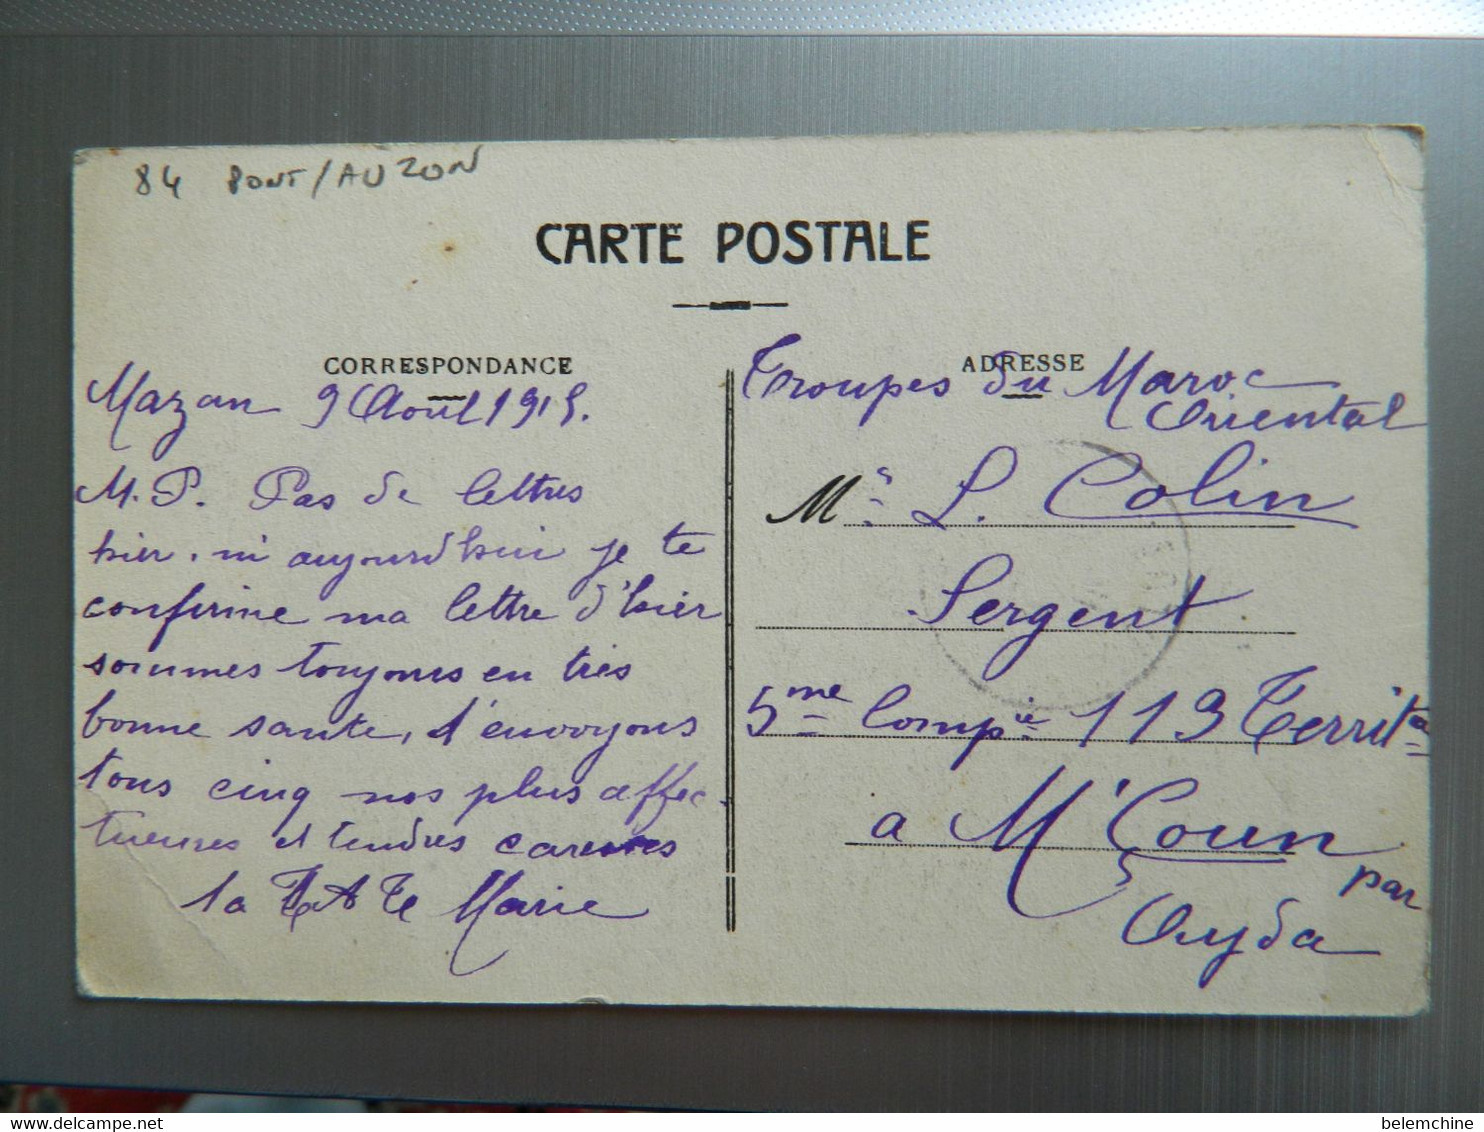 84 PONT/AUZON
CARTE POSTALE
CORRESPONDANCE
Mazan 9 Aout 1915.
M. P. Pas de lettres
hier, ni aujourd'hui je te
confirme ma lettre d'hier
sommes toujours en très
bonne sante, t'envoyons
tous cinq nos plus affec-
tueuses et tendres caresses
ta T A T Marie
ADRESSE
Troupes du Maroc
Oriental
Mr. L. Colin
Sergent
5me Compie 113 Territa
a M'Coun
par
Oujda
delcampe.net
belemchine